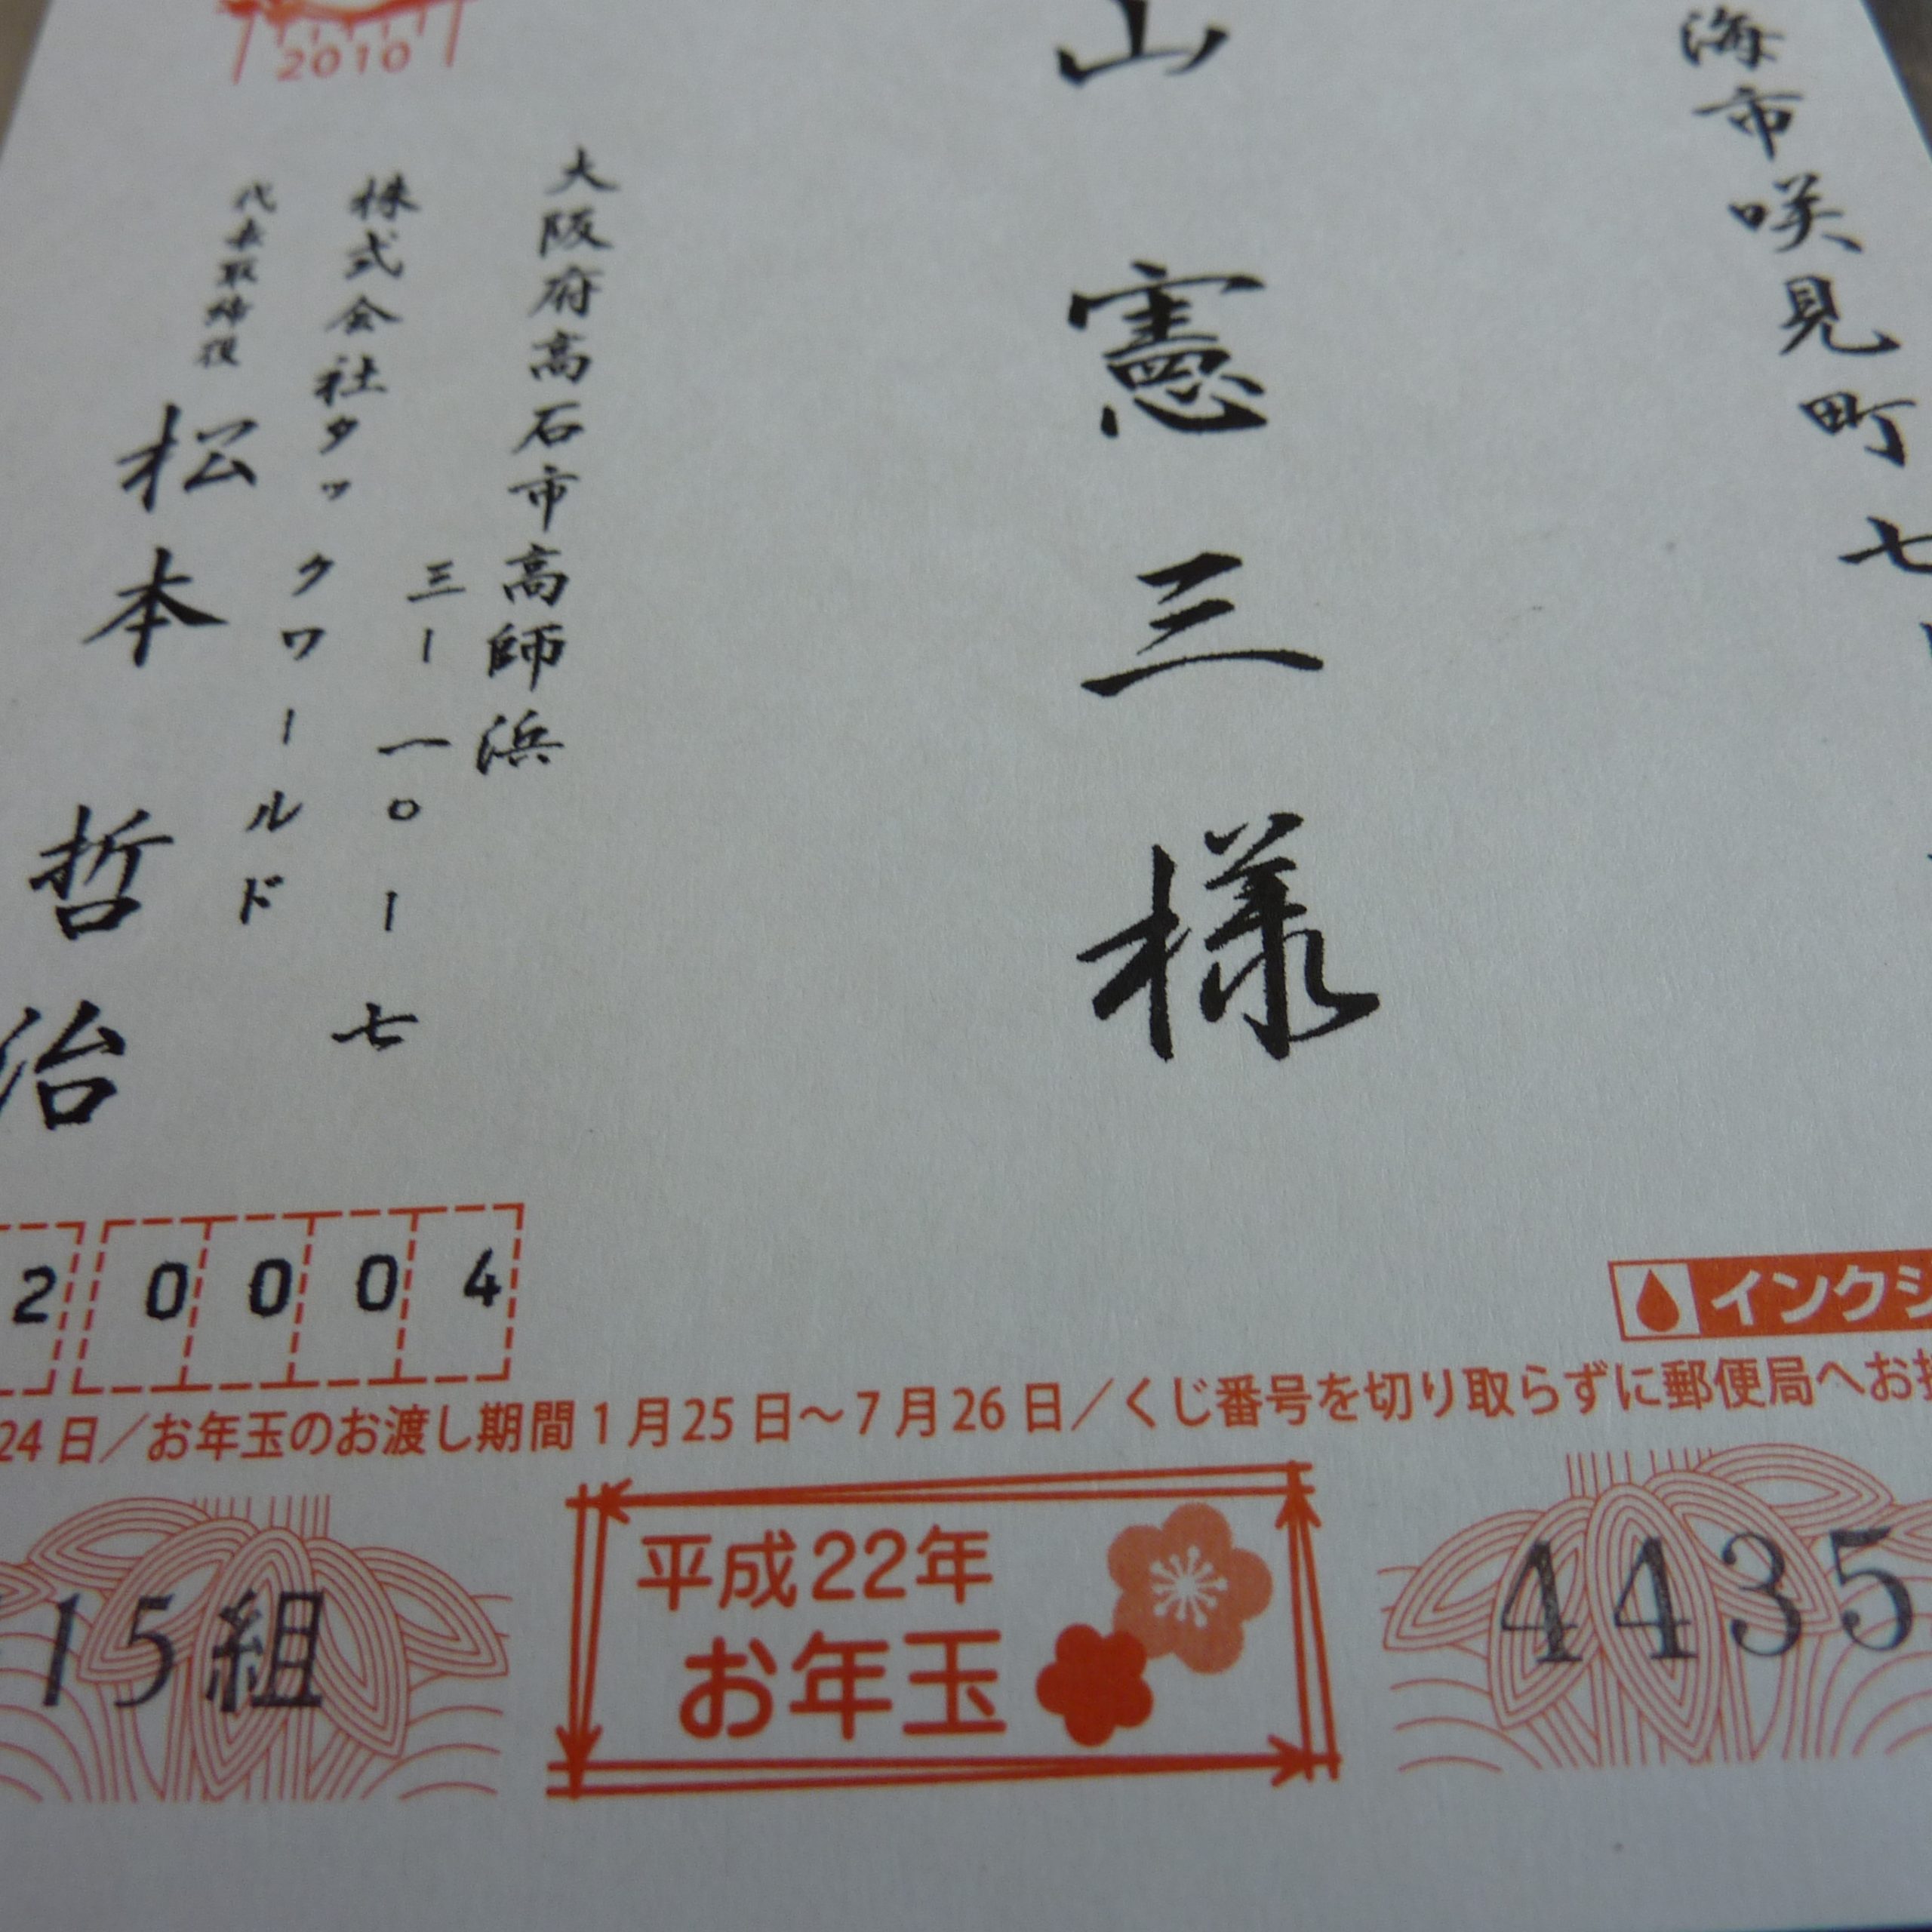 2010
海市咲見町七
山憲三様
大阪府高石市高師浜
三ー一〇ー七
株式会社タックワールド
代表取締役 松本哲治
2 0004
インクジ
24日／お年玉のお渡し期間1月25日〜7月26日／くじ番号を切り取らずに郵便局へお
15組
平成22年
お年玉
4435